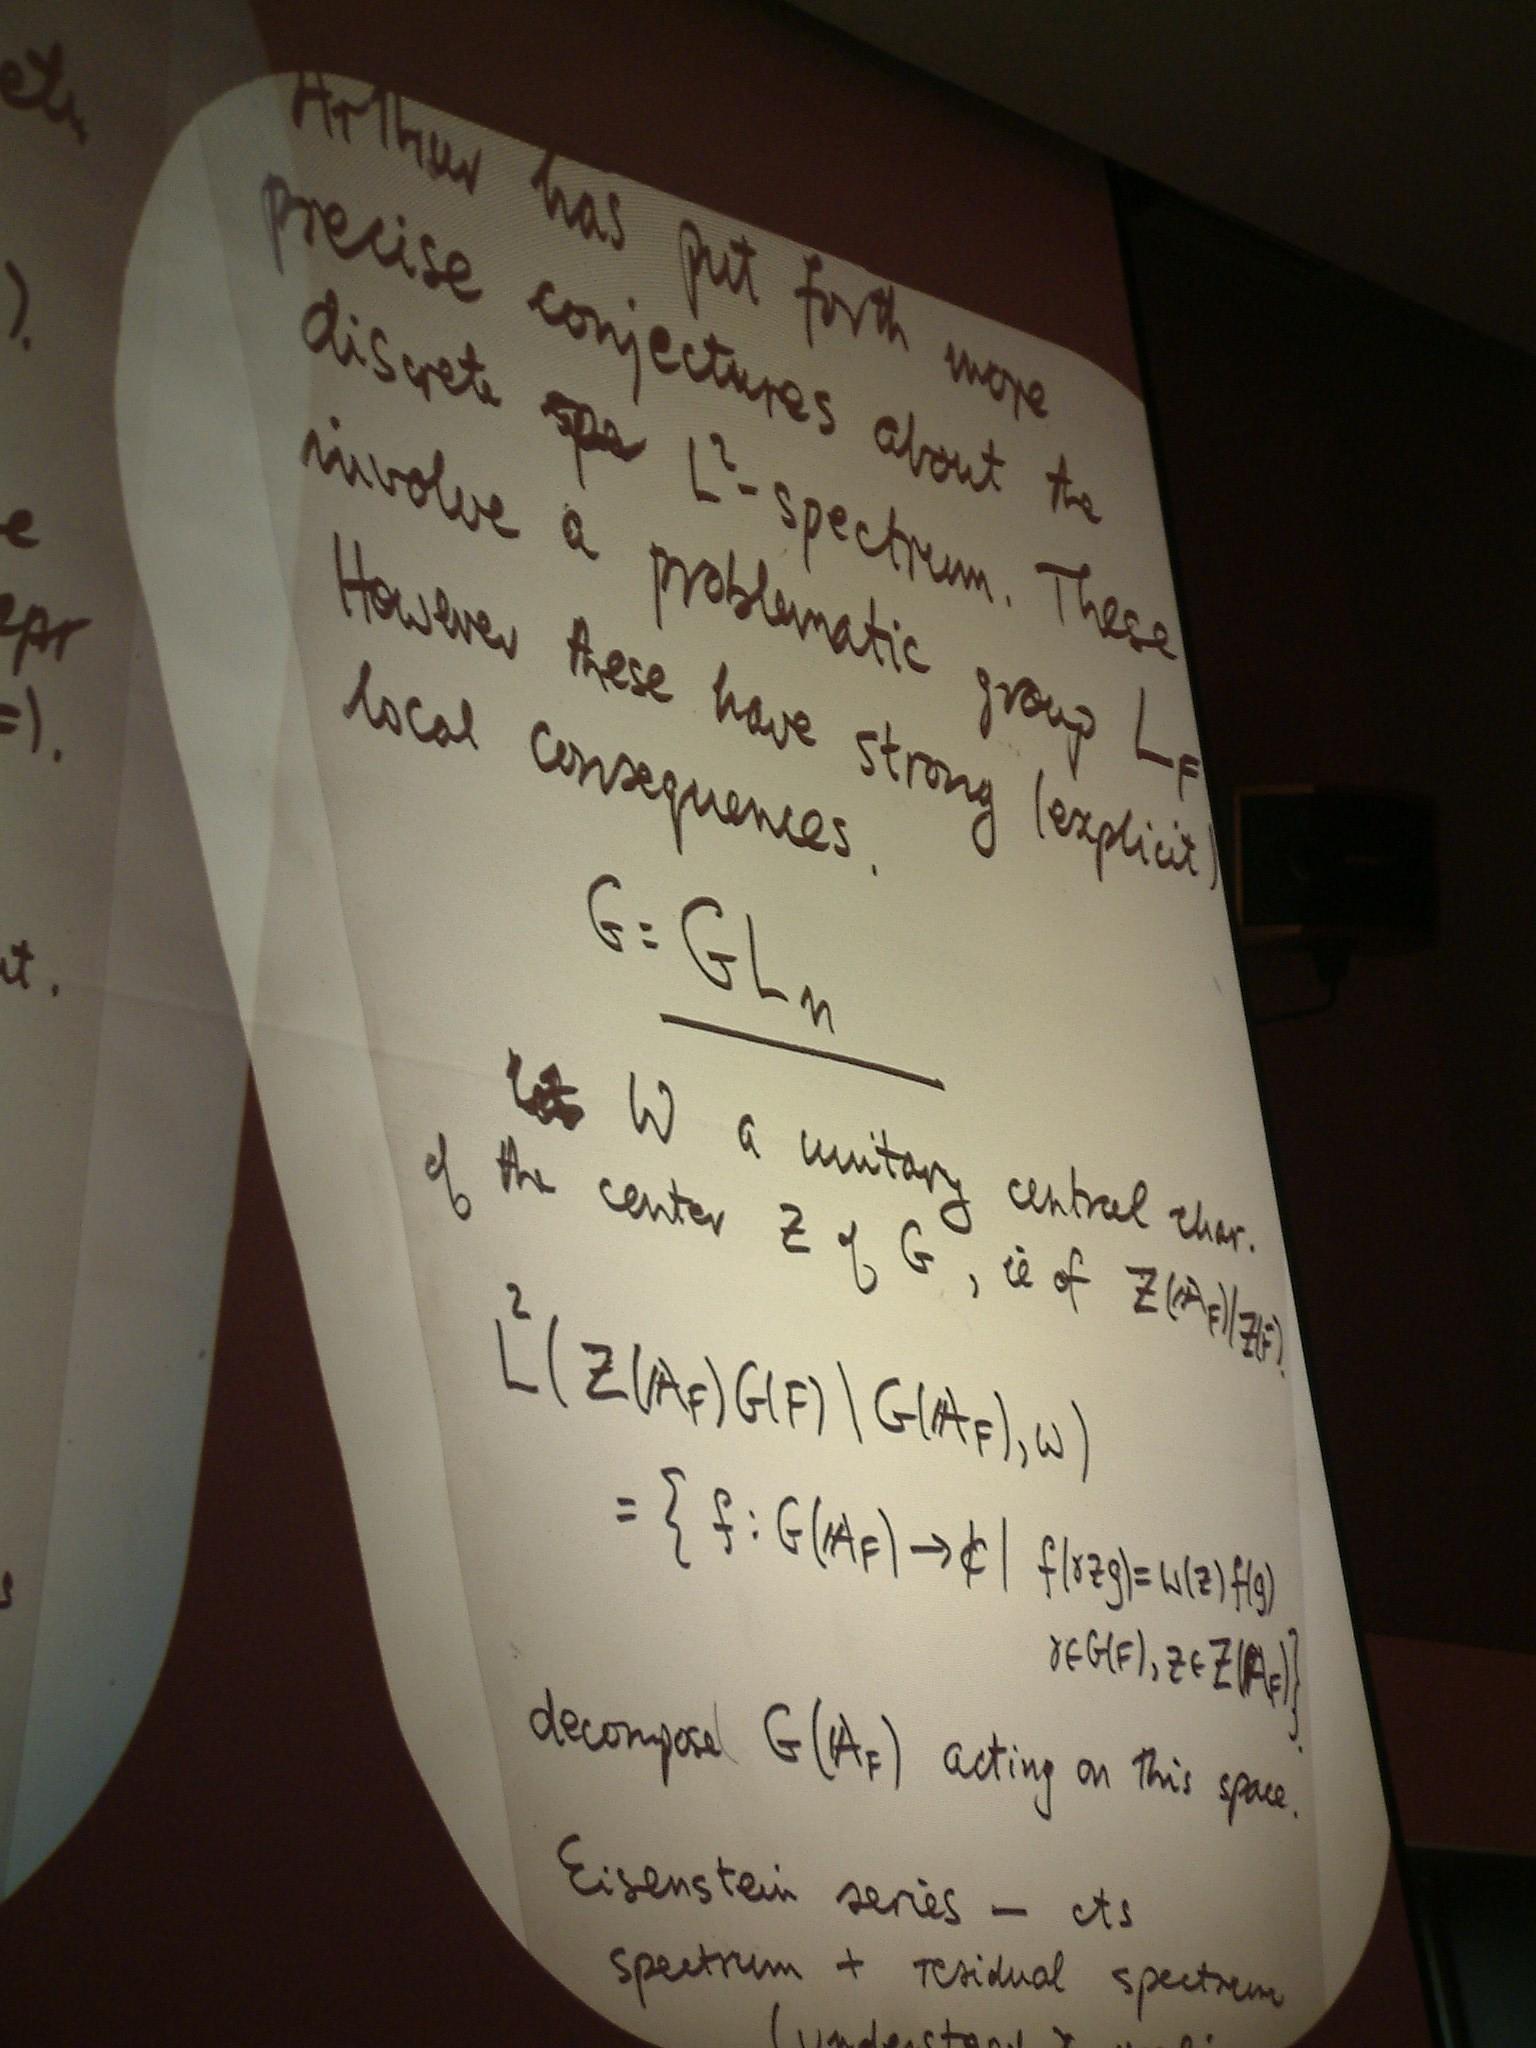 Arthur has put forth more
precise conjectures about the
discrete L²-spectrum. These
involve a problematic group L_F
However these have strong (explicit)
local consequences.
G = GL_n
ω a unitary central char.
of the center Z of G, ie of Z(𝔸_F)/Z(F).
L²(Z(𝔸_F)G(F)\G(𝔸_F), ω)
= { f : G(𝔸_F) → ℂ | f(γzg) = ω(z) f(g)
γ∈G(F), z∈Z(𝔸_F)}.
decompose G(𝔸_F) acting on this space.
Eisenstein series – cts
spectrum + residual spectrum
epr
=).
).